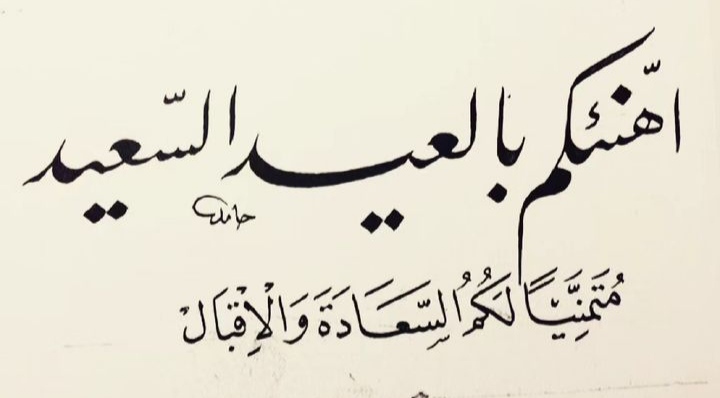 اهّنئكم بالعيد السّعيد
حامد
مُتَمَنِّيًا لَكُمُ السِّعَادَةَ وَالْاِقْبَالَ